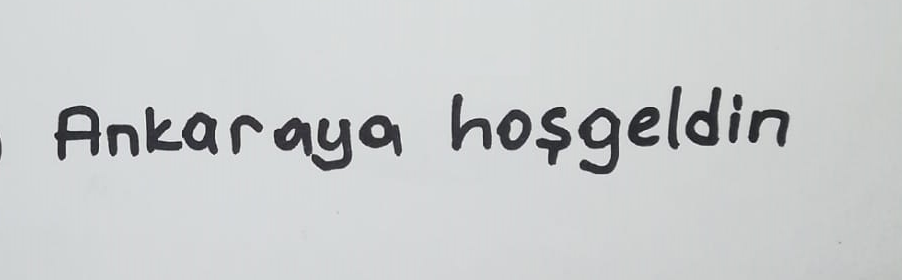 Ankaraya hoşgeldin